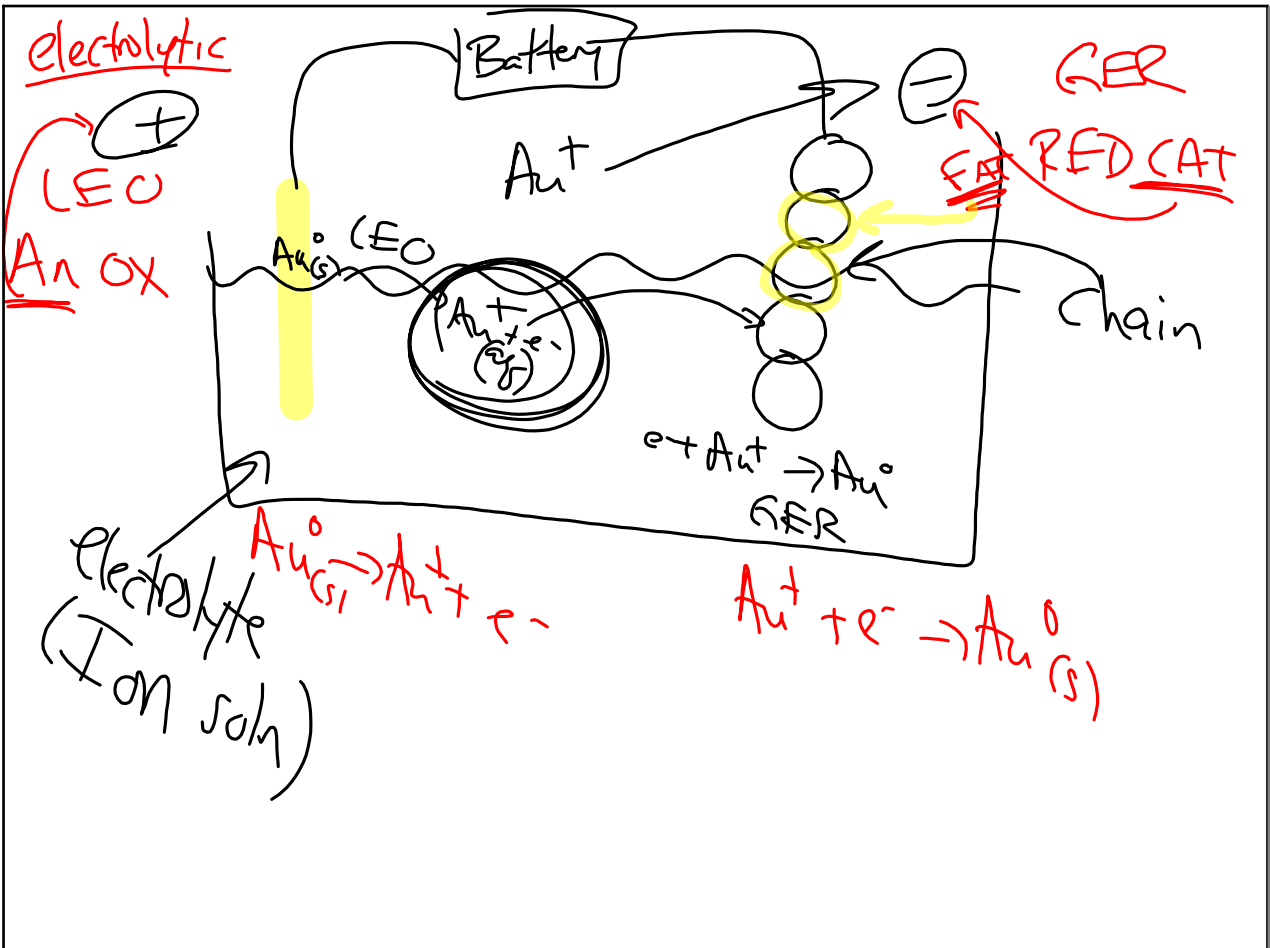 electrolytic
Battery
+
−
GER
LEO
Au⁺
FAT RED CAT
An OX
Au⁰(s)
LEO
Au⁺ + e⁻
(aq)
Chain
e + Au⁺ → Au⁰
GER
electrolyte
(Ion soln)
Au⁰(s) → Au⁺ + e⁻
Au⁺ + e⁻ → Au⁰(s)